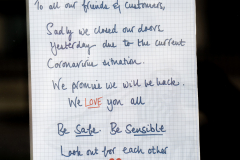 To all our friends & customers,
Sadly we closed our doors
yesterday due to the current
Coronavirus situation.
We promise we will be back.
We LOVE you all
Be Safe. Be Sensible
Look out for each other